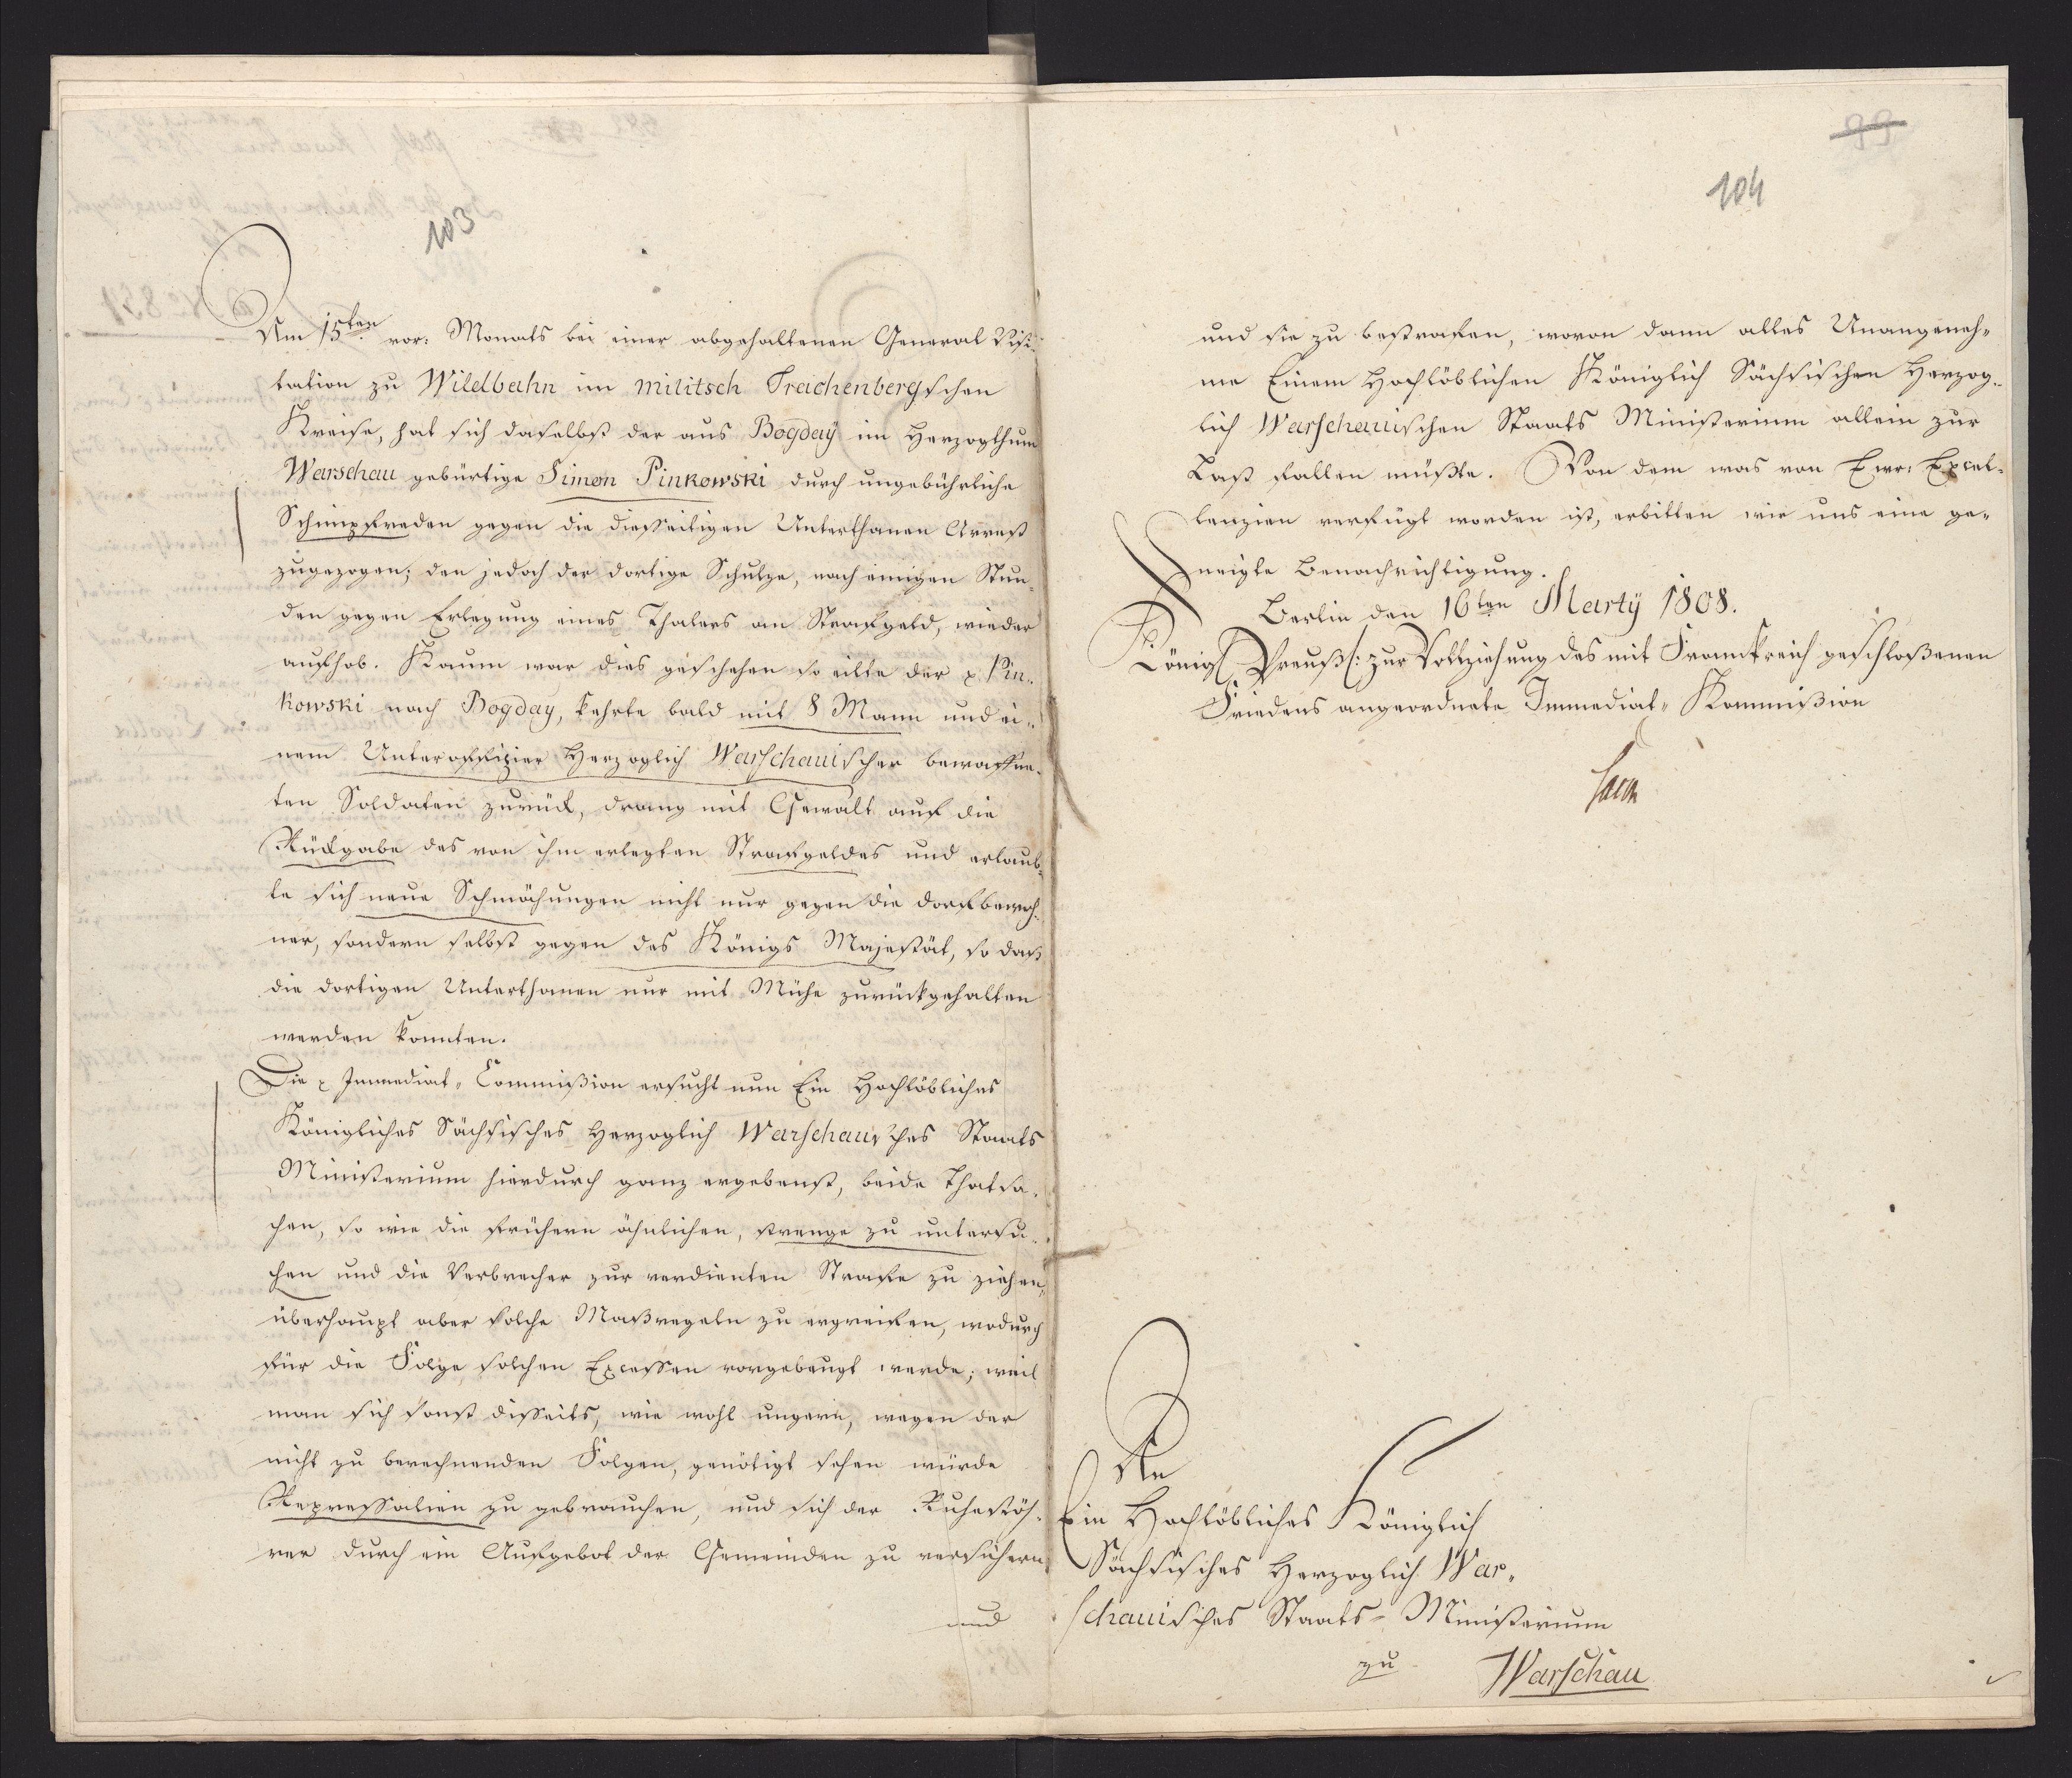 103
Am 15ten vor: Monats bei einer abgehaltenen General Visi-
tation zu Wildbahn im militsch Trachenbergschen
Kreise, hat sich daselbst der aus Bogday im Herzogthum
Warschau gebürtige Simon Pinkowski durch ungebührliche
Schimpfreden gegen die diesseitigen Unterthanen Arrest
zugezogen; den jedoch der dortige Schulze, nach einigen Stun-
den gegen Erlegung eines Thalers an Strafgeld, wieder
aufhob. Kaum war dies geschehen so eilte der p Pin-
kowski nach Bogday, kehrte bald mit 8 Mann und ei-
nem Unteroffizier Herzoglich Warschauischer bewaffne-
ten Soldaten zurück, drang mit Gewalt auf die
Rückgabe des von ihm erlegten Strafgeldes und erlaub-
te sich neue Schmähungen nicht nur gegen die dorfbewoh-
ner, sondern selbst gegen des Königs Majestät, so daß
die dortigen Unterthanen nur mit Mühe zurückgehalten
werden konnten.
Die p Immediat-Commißion ersucht nun Ein Hochlöbliches
Königliches Sächsisches Herzoglich Warschausches Staats
Ministerium hierdurch ganz ergebenst, beide Thatsa-
chen, so wie die frühern ähnlichen, strenge zu untersu-
chen und die Verbrecher zur verdienten Strafe zu ziehen,
überhaupt aber solche Maßregeln zu ergreifen, wodurch
für die Folge solchen Excessen vorgebeugt werde; weil
man sich sonst disseits, wie wohl ungern, wegen der
nicht zu berechnenden Folgen, genötigt sehen würde
Repressalien zu gebrauchen, und sich der Ruhestöh-
rer durch ein Aufgebot der Gemeinden zu versichern
und
99
104
und sie zu bestrafen, wovon dann alles Unangeneh-
me Einem Hochlöblichen Königlich Sächsischen Herzog-
lich Warschauischen Staats Ministerium allein zur
Last fallen müßte. Von dem was von Ewr: Excel-
lenzien verfügt worden ist, erbitten wir uns eine ge-
neigte Benachrichtigung.
Berlin den 16ten Martÿ 1808.
Königl Preuß: zur Vollziehung des mit Frankreich geschloßenen
Friedens angeordnete Immediat-Kommißion
Sack
An
Ein Hochlöbliches Königlich
Sächsisches Herzoglich War-
schauisches Staats-Ministerium
zu Warschau